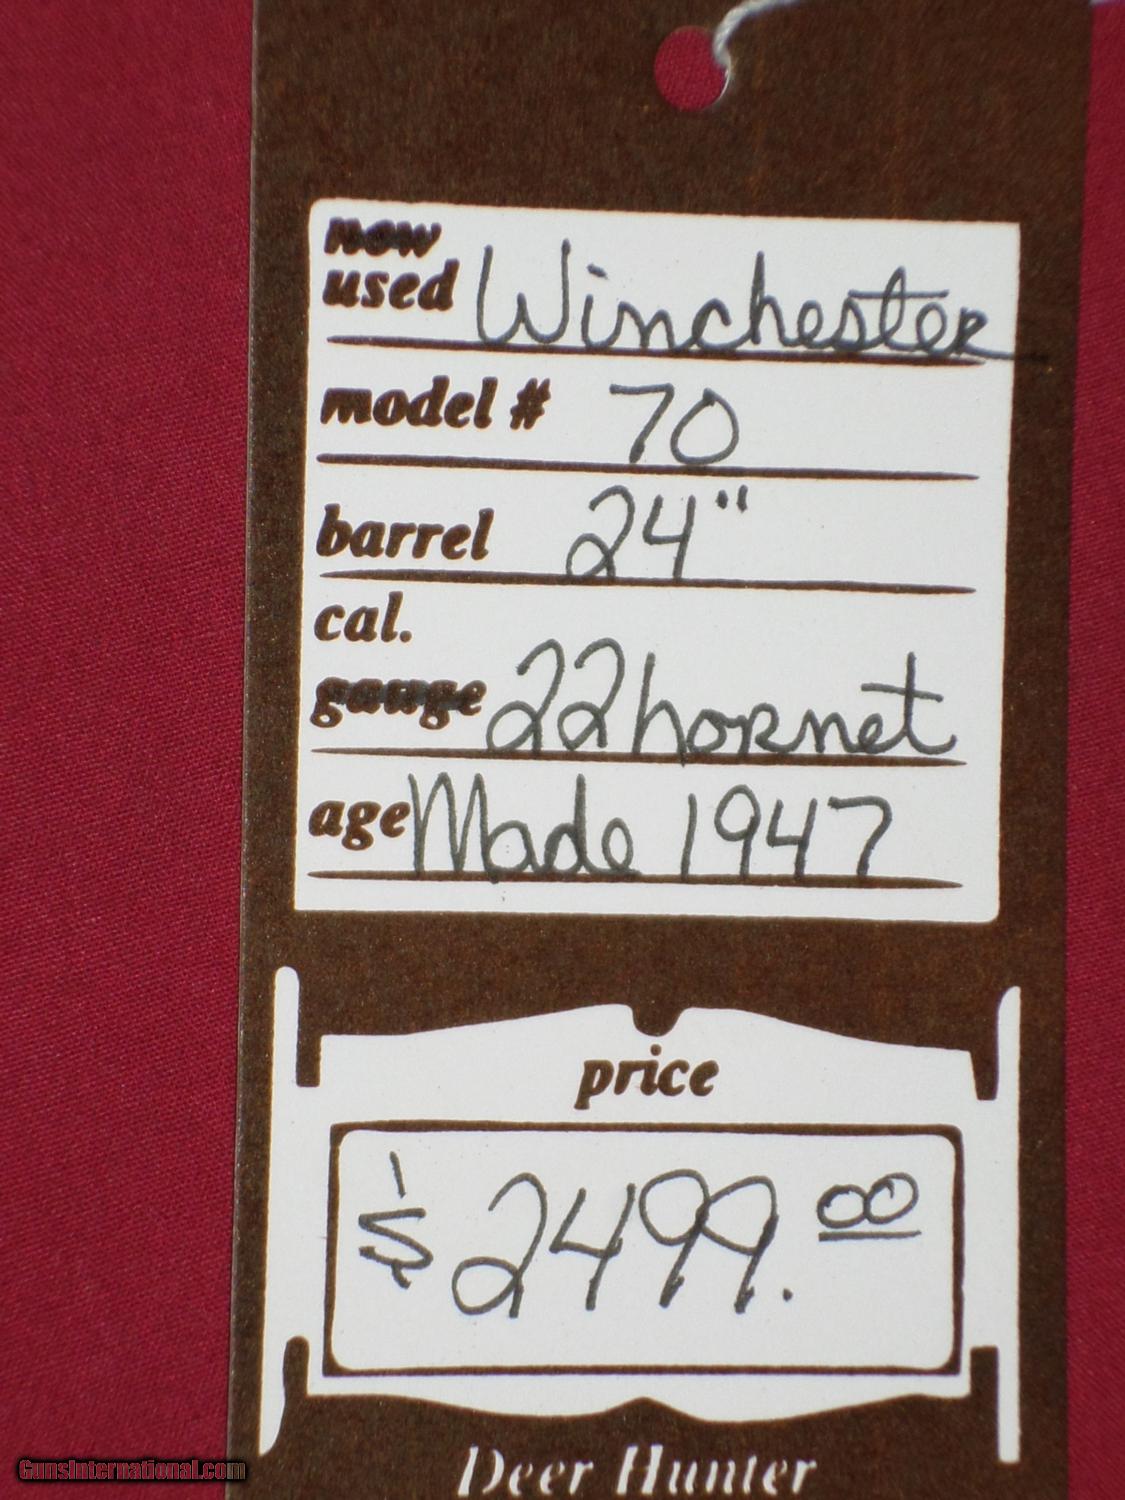 new
used Winchester
model # 70
barrel 24"
cal.
gauge 22 hornet
age Made 1947
price
$2499.00
Deer Hunter
GunsInternational.com